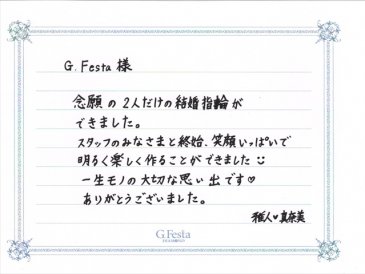 G.Festa 様
念願の2人だけの結婚指輪が
できました。
スタッフのみなさまと終始、笑顔いっぱいで
明るく楽しく作ることができました☺
一生モノの大切な思い出です♡
ありがとうございました。
雅人♥真奈美
G.Festa